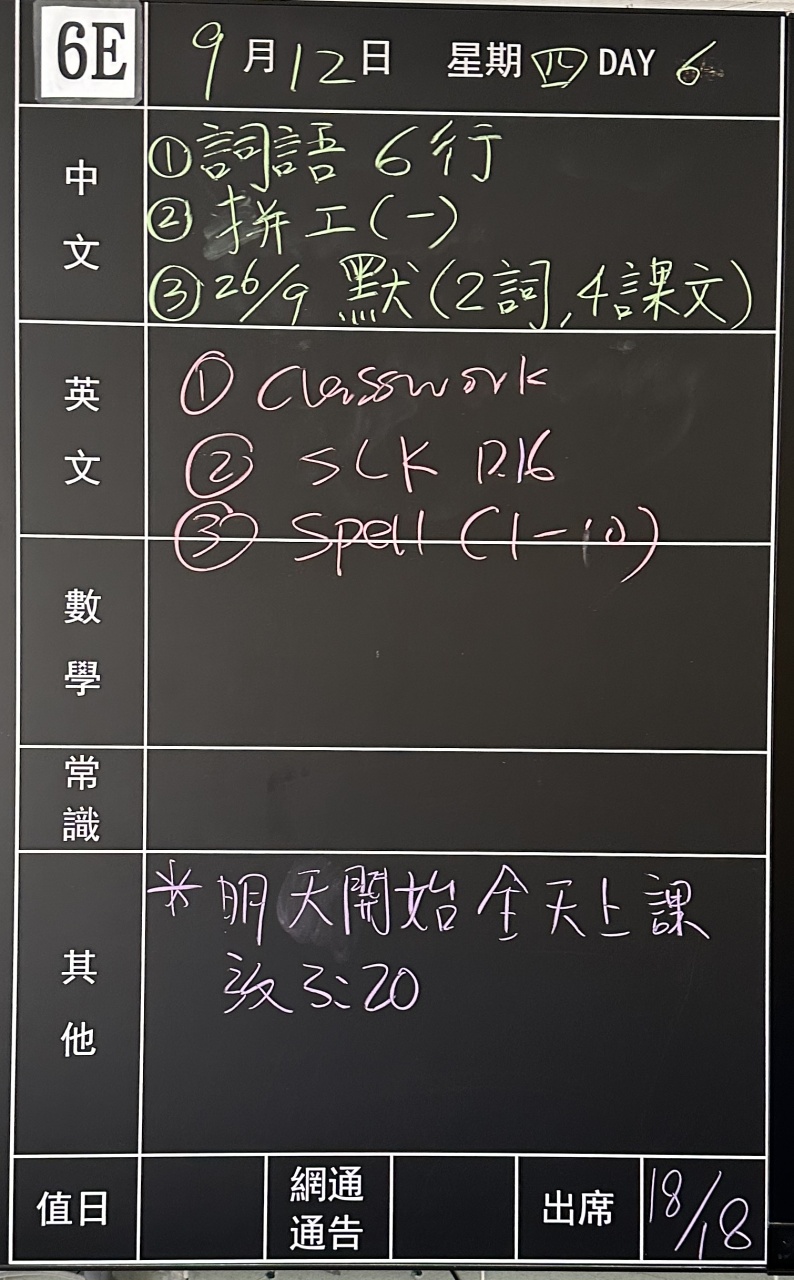 6E 9月12日 星期四 DAY 6
中文
①詞語 6行
②拼工(一)
③26/9 默(2詞,4課文)
英文
① Classwork
② SLK P.16
③ Spell (1-10)
數學
常識
其他
* 明天開始全天上課
放3:20
值日 網通通告 出席 18/18